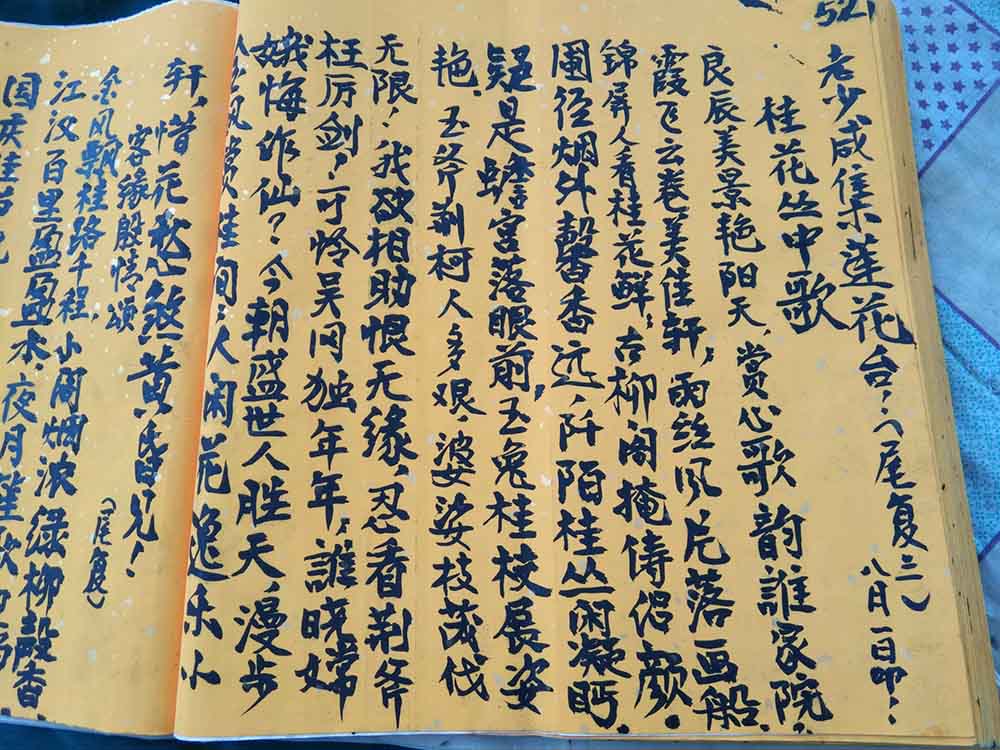 521
老少咸集莲花台，(尾复三)
八月一日印！
桂花丛中歌
良辰美景艳阳天，赏心歌韵誰家院，
霞飞云卷美佳轩，雨丝风片落画船，
锦屏人看桂花鲜，古柳阁掩俦侣颜。
圃径烟外馨香远，阡陌桂丛闲凝眄，
疑是蟾宫落眼前，玉兔桂枝展姿
艳 玉斧荆柯人多艰，婆娑枝茂伐
无限，我欲相助恨无缘，忍看荆斧
枉厉剑，可怜吴冈独年年，誰晓嫦
娥悔作仙？今朝盛世人胜天，漫步
风赏桂闻人闲花逸乐小
轩，惜花愁煞黄昏兄！
客缘殷情颂
(尾复)
金风飘桂路千程，小阁烟浪绿柳殿香，
江汉百里盈盈水，夜月笙歌
国庆桂